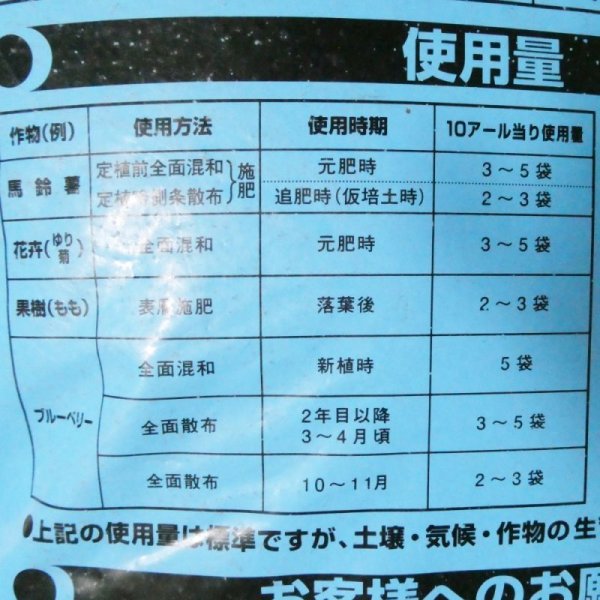 使用量
作物(例) 使用方法 使用時期 10アール当り使用量
馬鈴薯 定植前全面混和 施肥 元肥時 3〜5袋
定植時側条散布 追肥時(仮培土時) 2〜3袋
花卉(ゆり菊) 全面混和 元肥時 3〜5袋
果樹(もも) 表層施肥 落葉後 2〜3袋
ブルーベリー 全面混和 新植時 5袋
全面散布 2年目以降
3〜4月頃 3〜5袋
全面散布 10〜11月 2〜3袋
●上記の使用量は標準ですが、土壌・気候・作物の生
お客様へのお願